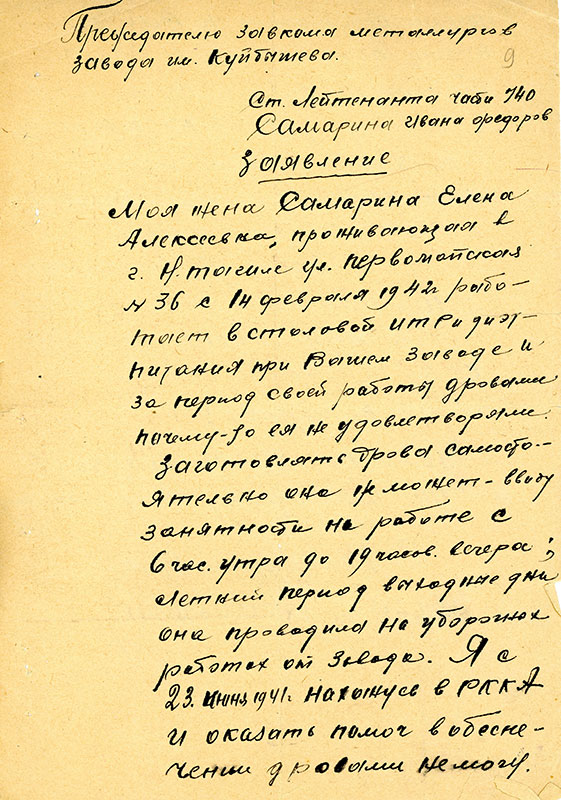 Председателю завкома металлургов
завода им. Куйбышева.
9
Ст. Лейтенанта части 740
Самарина Ивана Федоров
Заявление
Моя жена Самарина Елена
Алексеевна, проживающая в
г. Н. тагиле ул. первомайская
№ 36 с 14 февраля 1942г рабо-
тает в столовой ИТР и диэт-
питания при Вашем заводе и
за период своей работы дровами
почему-то ея не удовлетворяли.
Заготовлять дрова самосто-
ятельно она не может - ввиду
занятности на работе с
6 час. утра до 19 часов. вечера;
летний период выходные дни
она проводила на уборочных
работах от завода. Я с
23. июня 1941г. нахожусь в РККА
и оказать помоч в обеспе-
чении дровами немогу.